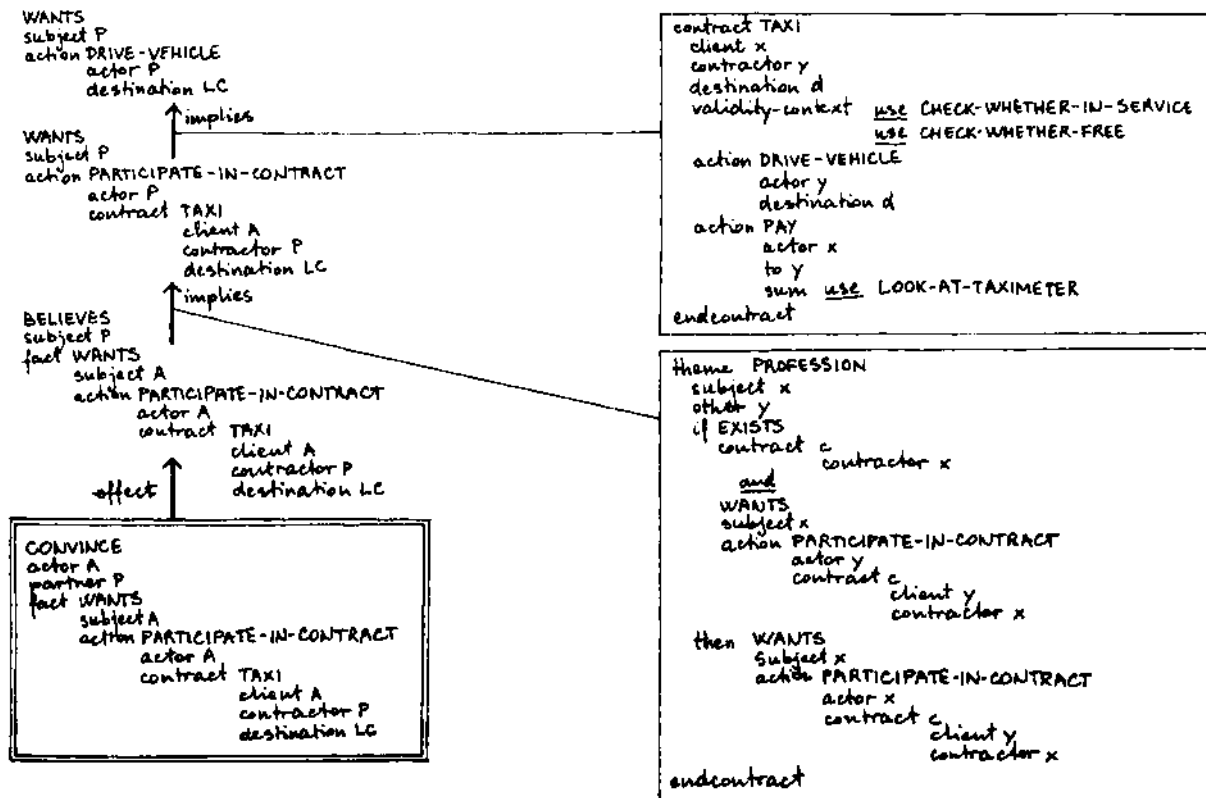 WANTS
subject P
action DRIVE-VEHICLE
actor P
destination LC
implies
WANTS
subject P
action PARTICIPATE-IN-CONTRACT
actor P
contract TAXI
client A
contractor P
destination LC
implies
BELIEVES
subject P
fact WANTS
subject A
action PARTICIPATE-IN-CONTRACT
actor A
contract TAXI
client A
contractor P
destination LC
effect
CONVINCE
actor A
partner P
fact WANTS
subject A
action PARTICIPATE-IN-CONTRACT
actor A
contract TAXI
client A
contractor P
destination LC
contract TAXI
client x
contractor y
destination d
validity-context use CHECK-WHETHER-IN-SERVICE
use CHECK-WHETHER-FREE
action DRIVE-VEHICLE
actor y
destination d
action PAY
actor x
to y
sum use LOOK-AT-TAXIMETER
endcontract
theme PROFESSION
subject x
other y
if EXISTS
contract c
contractor x
and
WANTS
subject x
action PARTICIPATE-IN-CONTRACT
actor y
contract c
client y
contractor x
then WANTS
subject x
action PARTICIPATE-IN-CONTRACT
actor x
contract c
client y
contractor x
endcontract